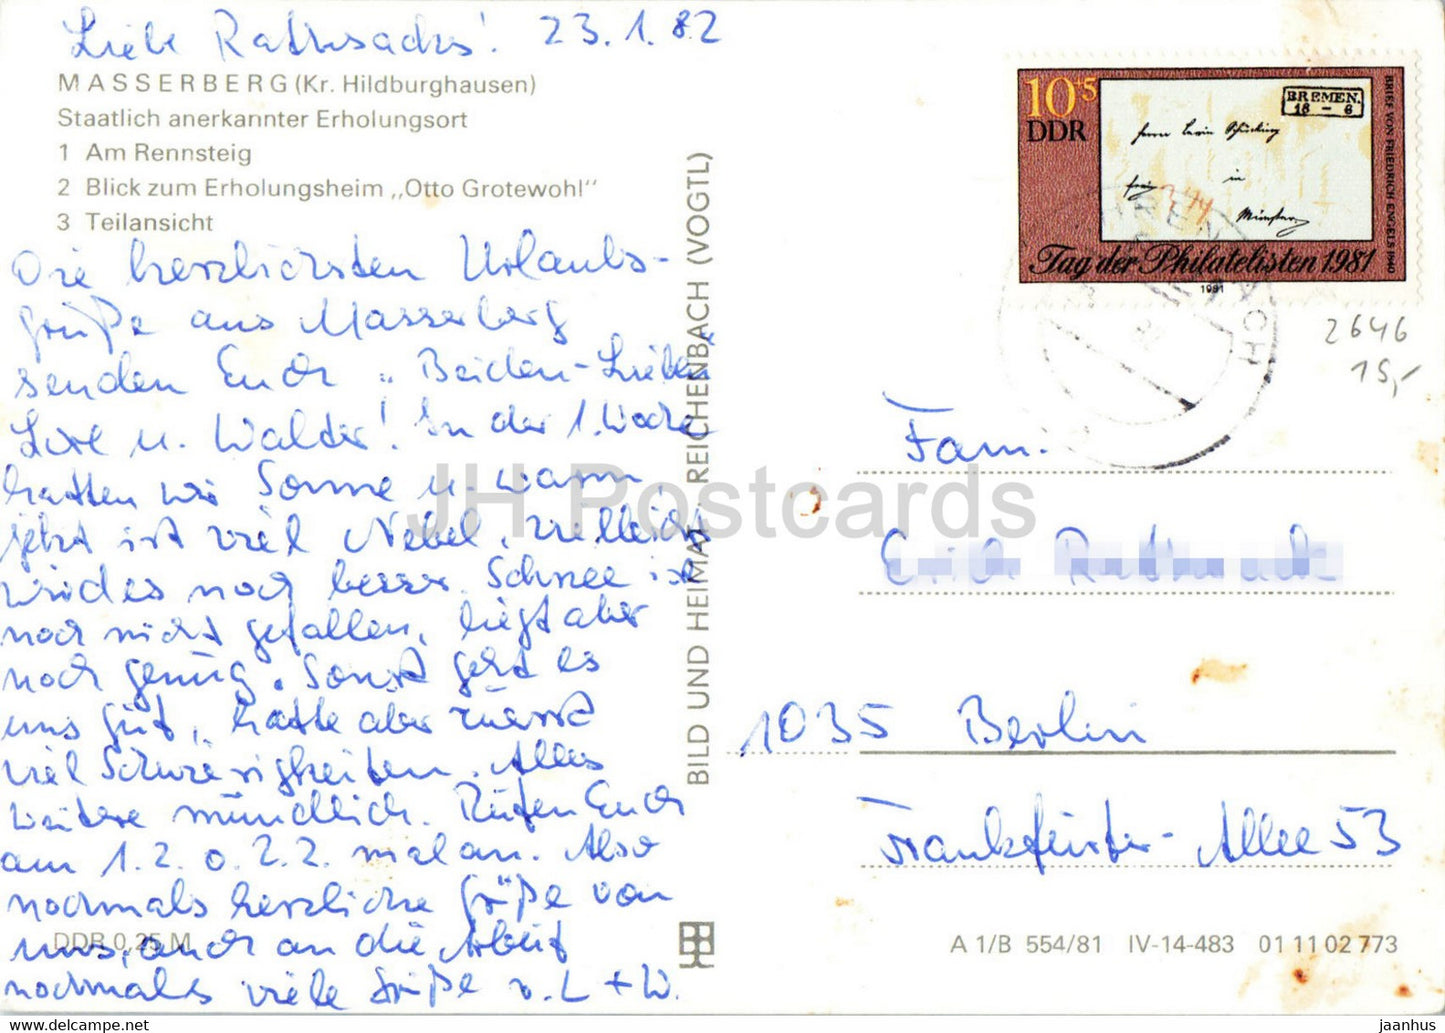 Liebe Rathsacks! 23.1.82
MASSERBERG (Kr. Hildburghausen)
Staatlich anerkannter Erholungsort
1 Am Rennsteig
2 Blick zum Erholungsheim „Otto Grotewohl"
3 Teilansicht
Die herzlichsten Urlaubs-
grüße aus Masserberg
senden Euch „Beiden-Lieben"
Lore u. Walder! In der 1. Woche
hatten wir Sonne u. warm,
jetzt ist viel Nebel, vielleicht
wird es noch besser. Schnee ist
noch nicht gefallen, liegt aber
noch genug. Sonst geht es
uns gut, hatte aber zuerst
viel Schwierigkeiten. Alles
weitere mündlich. Rufen Euch
am 1.2. o. 2.2. mal an. Also
nochmals herzliche Grüße von
uns, auch an die Arbeit
nochmals viele Grüße v. L + W.
DDR 0,25 M
BILD UND HEIMAT REICHENBACH (VOGTL)
10+5
DDR
BREMEN.
16 - 6
Herrn Levin Schücking
frei in
Münster
BRIEF VON FRIEDRICH ENGELS 1840
Tag der Philatelisten 1981
1981
2646
15,-
Fam.
Erich Rathsack
1035 Berlin
Frankfurter-Allee 53
A 1/B 554/81 IV-14-483 01 11 02 773
JH Postcards
jaanhus ___ www.delcampe.net